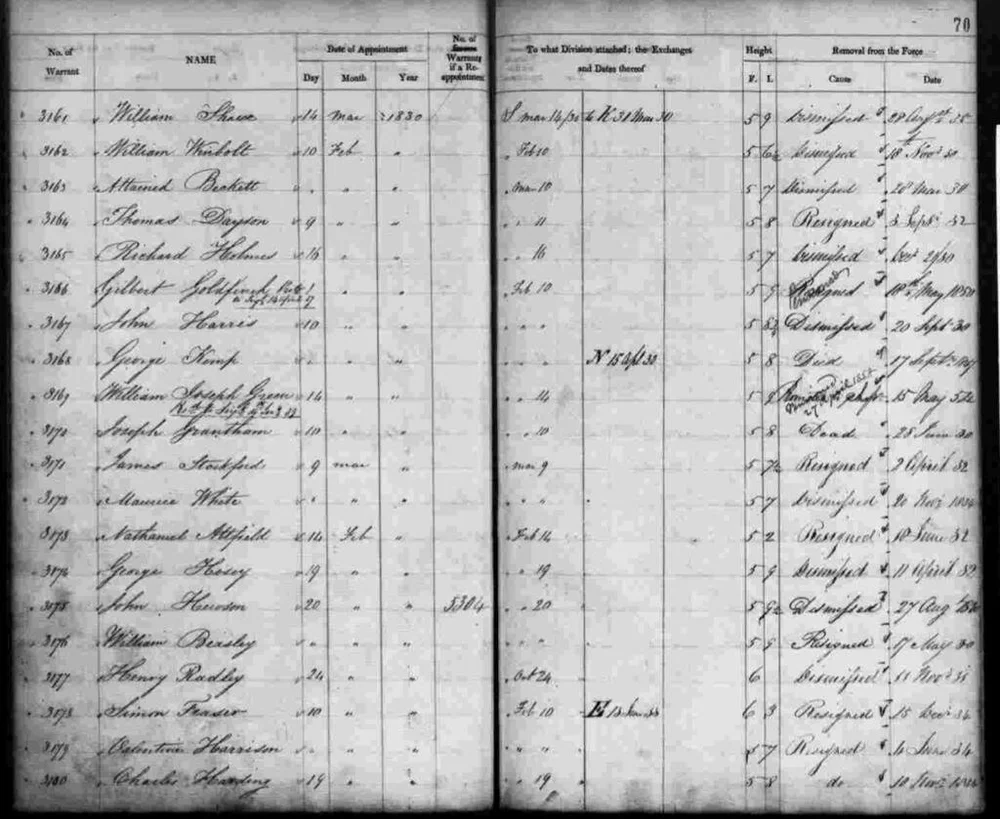 70
No. of Warrant NAME Date of Appointment No. of Warrant if a Re-appointment To what Division attached; the Exchanges and Dates thereof Height Removal from the Force
Day Month Year F. I. Cause Date
3161 William Shaw 14 Mar 1830 S Mar 14/30 to K 31 Mar 30 5 9 Dismissed 28 35
3162 William Winbolt 10 Feb " Feb 10 5 6½ Dismissed 18 Nov 30
3163 Beckett " " " Mar 10 5 7 Dismissed 28 Mar 30
3164 Thomas Dayson 9 " " " 11 5 8 Resigned Sept 32
3165 Richard Holmes 16 " " " 16 5 7 Dismissed 30
3166 Gilbert Goldfinch " " Feb 10 5 9 Resigned 18th May 1850
3167 John Harris 10 " " " " 5 Dismissed 20 Sept 30
3168 George Kemp " " " " " N 15 Apl 30 5 8 Died 17 Sept
3169 William Joseph Green 14 " " " 14 5 15 May 52
3170 Joseph Grantham 10 " " " 10 5 8 Dead 28 June 30
3171 James Stockford 9 Mar " Mar 9 5 7½ Resigned 2 April 32
3172 Maurice White " " " " " 5 7 Dismissed 20 Nov 1834
3173 Nathaniel Attfield 14 Feb " Feb 14 5 Resigned 18 June 32
3174 George Hosey 19 " " " 19 5 9 Dismissed 11 April 32
3175 John Hewson 20 " " 5304 " 20 5 9½ Dismissed 27 Aug
3176 William Beasley " " " " " 5 9 Resigned 17 May 30
3177 Henry Radley 24 " " Oct 24 6 Dismissed 11 Nov 35
3178 Simon Fraser 10 " " Feb 10 E 6 3 Resigned 15 Dec 36
3179 Valentine Harrison " " " " " 5 7 Resigned 4 June 34
3180 Charles Harding 19 " " " 19 5 8 do 10 Nov